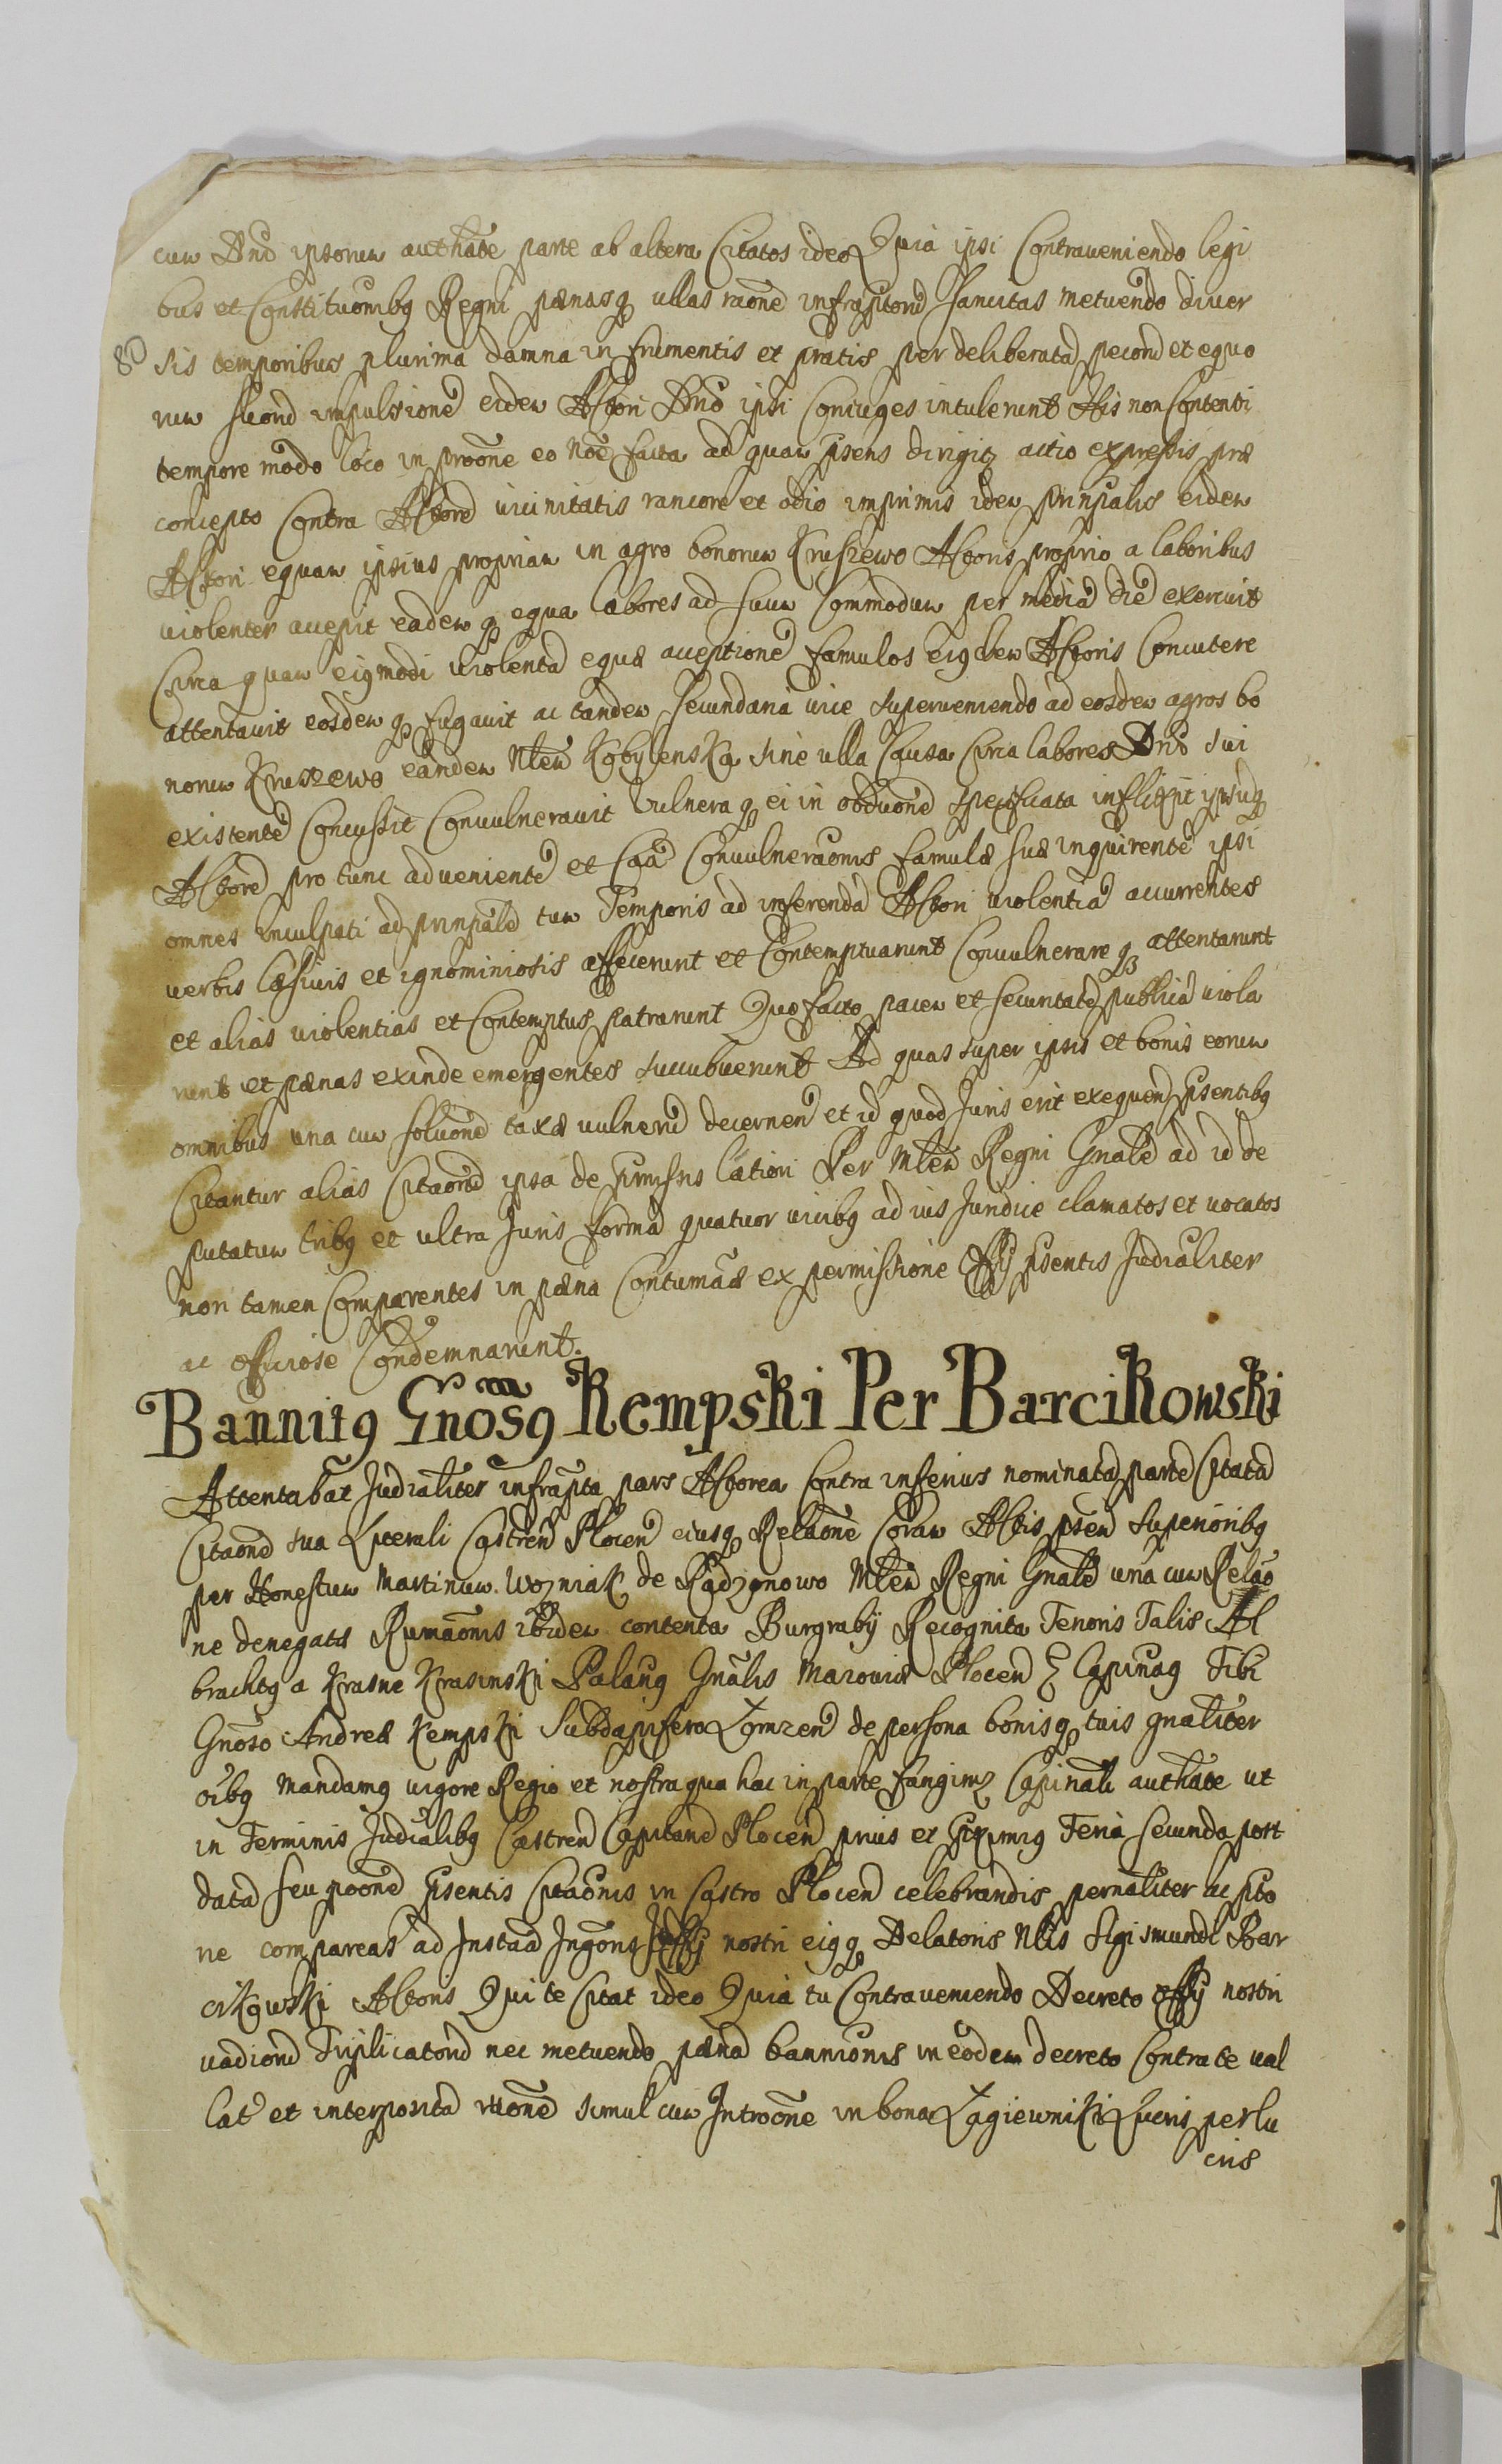 cum Dno ipsorum authãte parte ab altera Citatos ideo Quia ipsi Contraveniendo legi
bus et Constituõnibq Regni pænasq ullas raõne infraptorũ sancitas metuendo diver
80
sis temporibus plurima damna in frumentis et pratis per deliberatã pecorũ et equo
rum suorũ impulsionẽ eidem Actori Dno ipsi Coniuges intulerunt His non Contenti
tempore modo loco in proõne eo nõe facta ad quam psens dirigit actio expressis præ
concepto Contra Actorẽ vicinitatis rancore et odio imprimis idem Prinpalis eidem
Actori equam ipsius propriam in agro bonorum Kruszewo Actoris proprio a laboribus
violenter accepit eadem q equa labores ad suum Commodum per mediã diẽ exercuit
Circa quam eiqmodi violentã equæ acceptionẽ famulos eiqdem Actoris Concutere
attentavit eosdem q fugavit ac tandem secundaria vice superveniendo ad eosdem agros bo
norum Kruszewo eandem Nlem Kobylenska sine ulla Causa Circa labores Dni sui
existentẽ Concussit Convulneravit Vulnera q ei in obduõne specificata inflixit ipsuq
Actorẽ pro tunc advenientẽ et Caã Convulneraõnis famulæ suæ inquirentẽ ipsi
omnes inculpati ad prinpalẽ tum Temporis ad inferendã Actori violentiã accurrentes
verbis læsivis et ignominiosis affecerunt et Contemptuarunt Convulnerare q attentarunt
et alias violentias et Contemptus patrarunt Quo facto pacem et securitatẽ publicã viola
runt et pænas exinde emergentes succubuerunt Ad quas super ipsis et bonis eorum
omnibus una cum soluõne taxæ vulnerũ decernen et id quod Juris erit exequen psentibq
Citantur alias Citaõne ipsa de pmissis latiori Per Mlem Regni Gnalẽ ad id de
putatum tribq et ultra Juris formã quatuor vicibq ad ius Juridice clamatos et vocatos
non tamen Comparentes in pæna Contumaæ ex permissione Offy psentis Judialiter
ac officiose Condemnarunt.
Bannitq Gnosq Kempski Per Barcikowski
Attentabat Judialiter infrapta pars Actorea Contra inferius nominatã partẽ Citatã
Citaõne sua Literali Castren Plocen eiusq Relaõne Coram Actis psen superioribq
per Honestum Martinum Wozniak de Radzonowo Mlem Regni Gnalẽ una cum Relaõ
ne denegatæ Rumaõnis ibidem contenta Burgraby Recognita Tenoris Talis Al
brachtq a Krasne Krasinski Palanq Gnalis Mazoviæ Plocen Capnæq Tibi
Gnoso Andreæ Kempski Subdapifero Lomzen de persona bonisq tuis gnaliter
oibq mandamq vigore Regio et nostra qua hac in parte fungimr Capinali authate ut
in Terminis Judialibq Castren Capitanẽ Plocen prius et pximiq Feria Secunda post
datã seu poõnẽ psentis Citaõnis in Castro Plocen celebrandis pernaliter ac pto
ne compareas ad Instaã Ingõris Offy nostri eiqq Delatoris Nlis Sigismundi Bar
cikowski Actoris Qui te Citat ideo Quia tu Contraveniendo Decreto Offy nostri
vadiorũ Triplicatorũ nec metuendo pænã bannionis in eodem decreto Contra te val
latã et interpositã raõnẽ simul cum Introõne in bona Lagiewniki Lucris perlu
cris